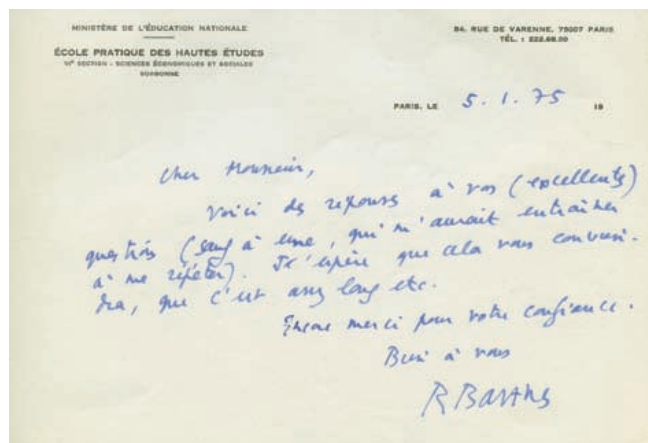 MINISTÈRE DE L'ÉDUCATION NATIONALE
ÉCOLE PRATIQUE DES HAUTES ÉTUDES
VIᵉ SECTION - SCIENCES ÉCONOMIQUES ET SOCIALES
SORBONNE
54, RUE DE VARENNE, 75007 PARIS
TÉL. : 222.68.20
PARIS, LE 5. 1. 75 19
Cher Monsieur,
Voici des réponses à vos (excellentes)
questions (sauf à une, qui m'aurait entraîné
à me répéter). J'espère que cela vous convien-
dra, que c'est assez long etc.
Encore merci pour votre confiance.
Bien à vous
R Barthes